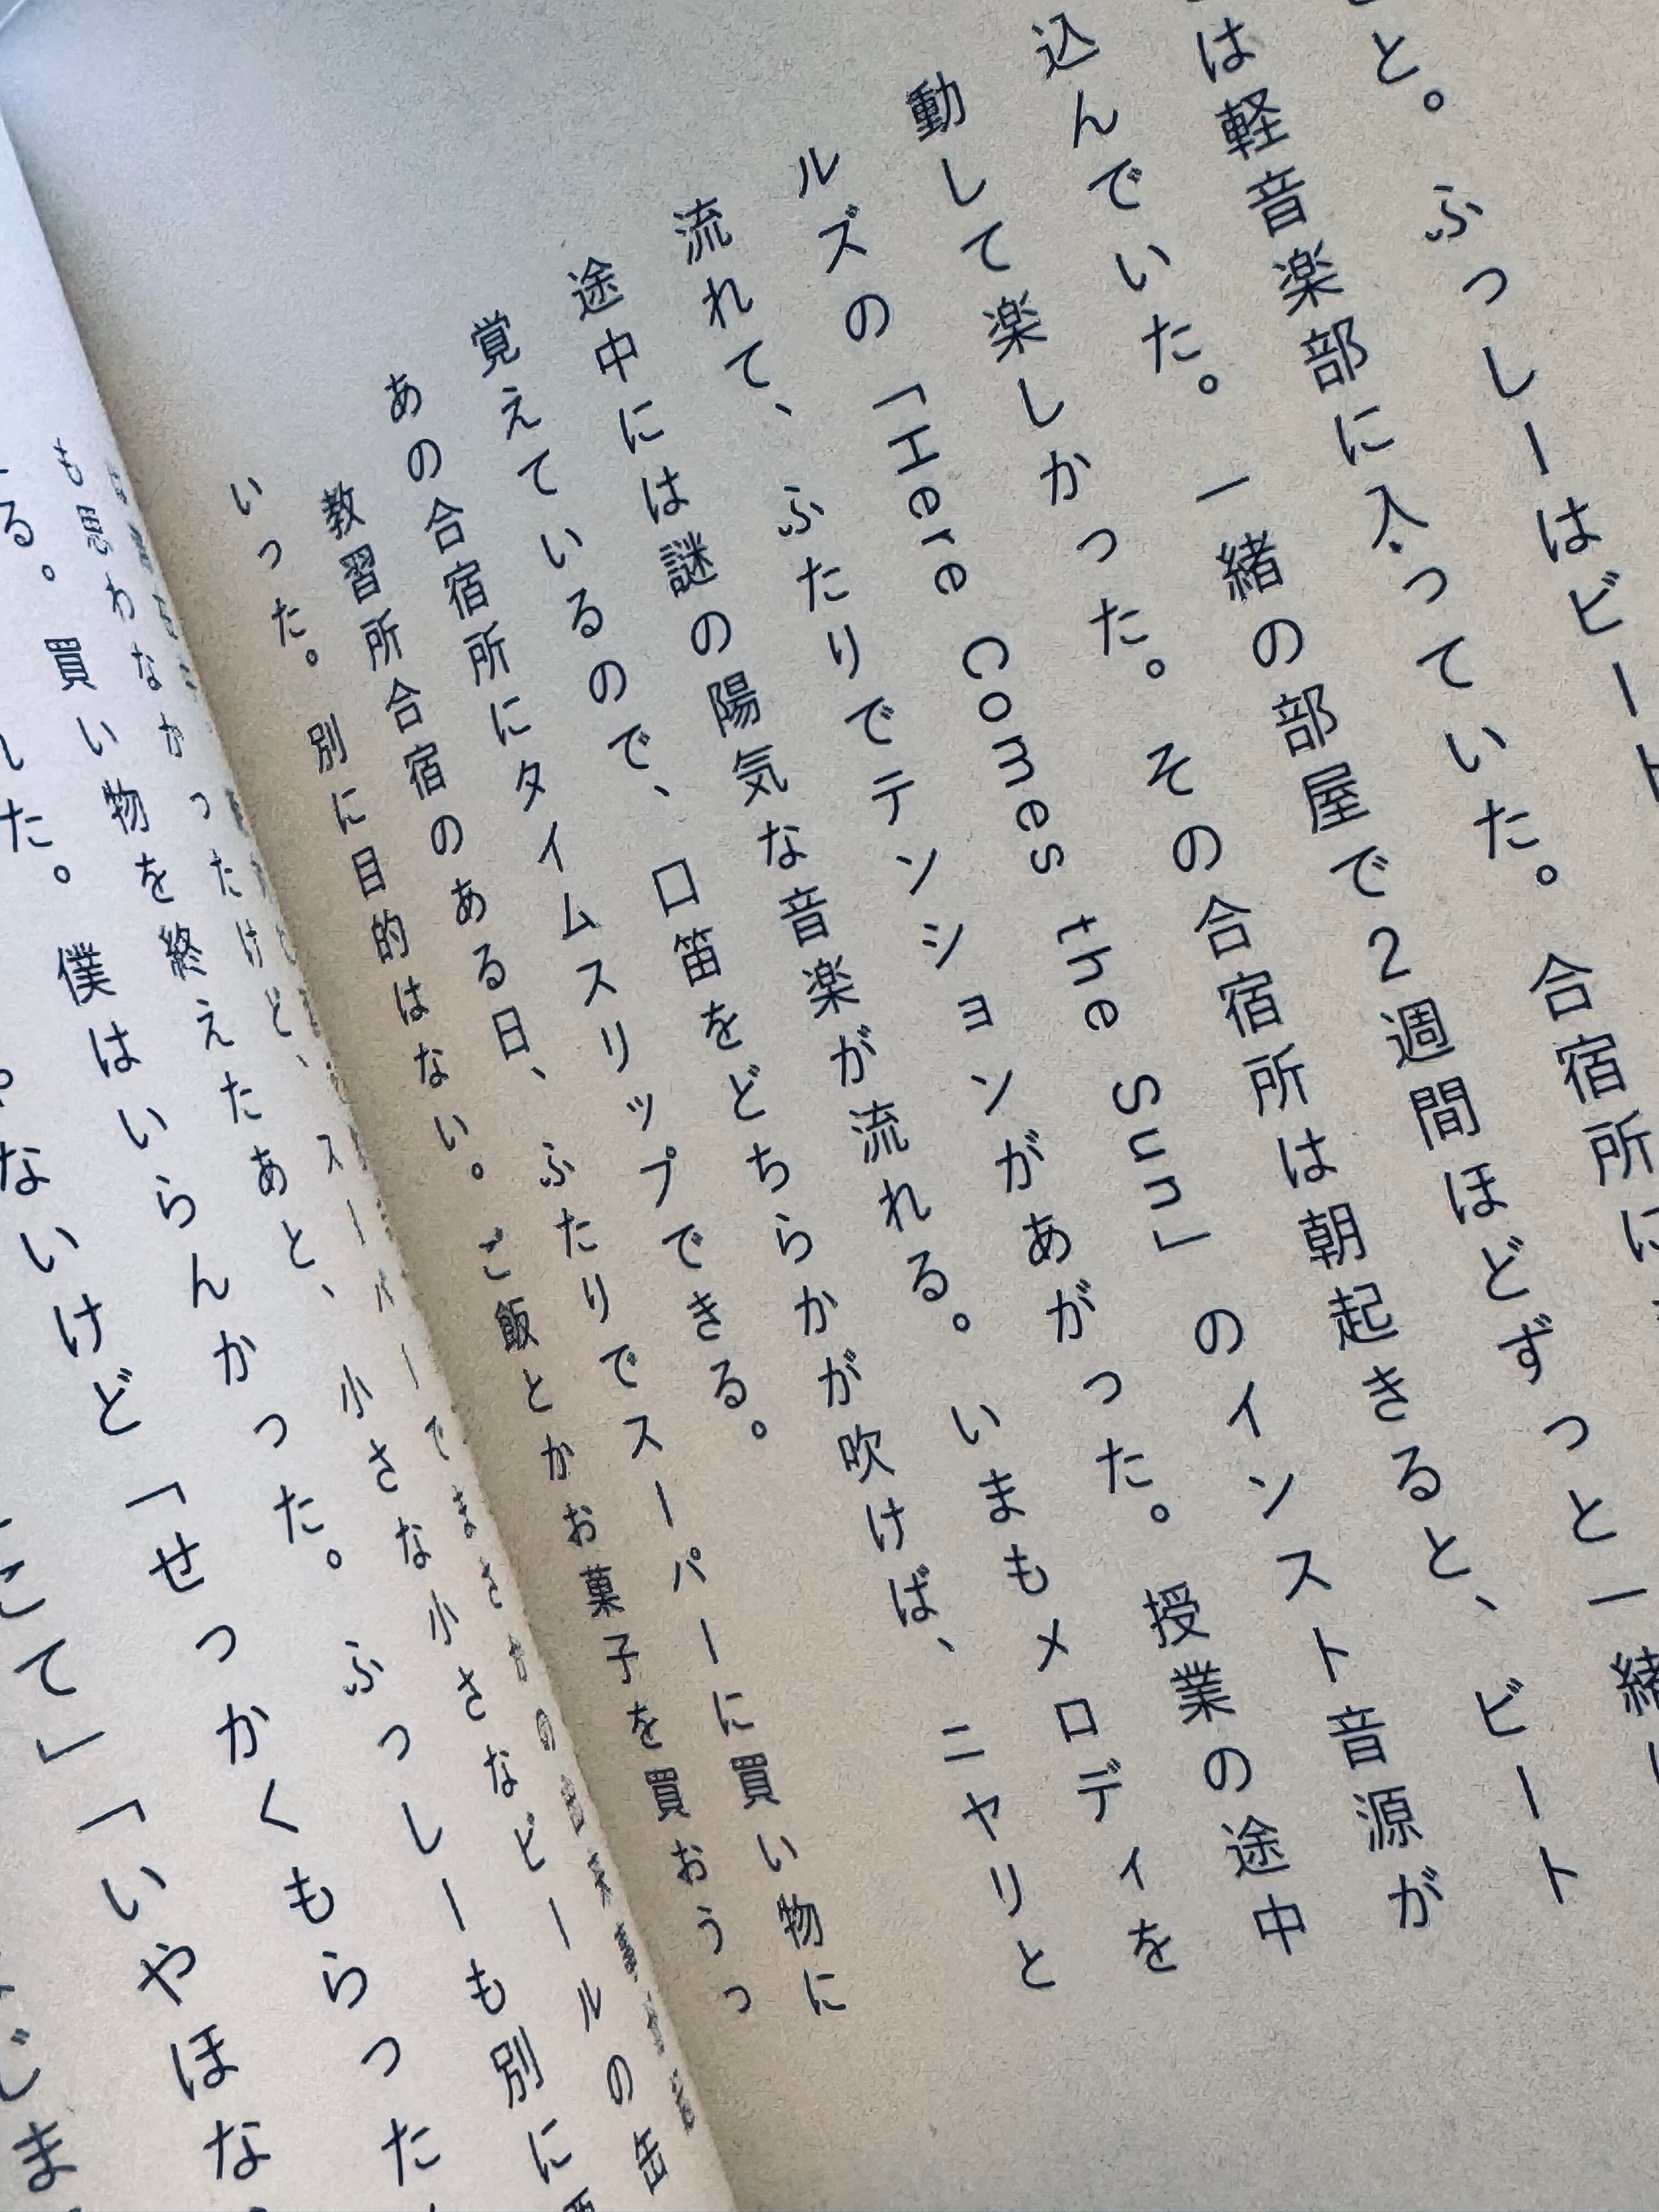 と。ふっしーはビート
は軽音楽部に入っていた。合宿所に
込んでいた。一緒の部屋で2週間ほどずっと一緒
動して楽しかった。その合宿所は朝起きると、ビート
ルズの「Here Comes the Sun」のインスト音源が
流れて、ふたりでテンションがあがった。授業の途中
途中には謎の陽気な音楽が流れる。いまもメロディを
覚えているので、口笛をどちらかが吹けば、ニヤリと
あの合宿所にタイムスリップできる。
教習所合宿のある日、ふたりでスーパーに買い物に
いった。別に目的はない。ご飯とかお菓子を買おうっ
も思わなかったけど、スーパーでまさかの
買い物を終えたあと、小さな小さなビールの缶
る。僕はいらんかった。ふっしーも別に
した。
ないけど「せっかくもらった
こて」「いやほな